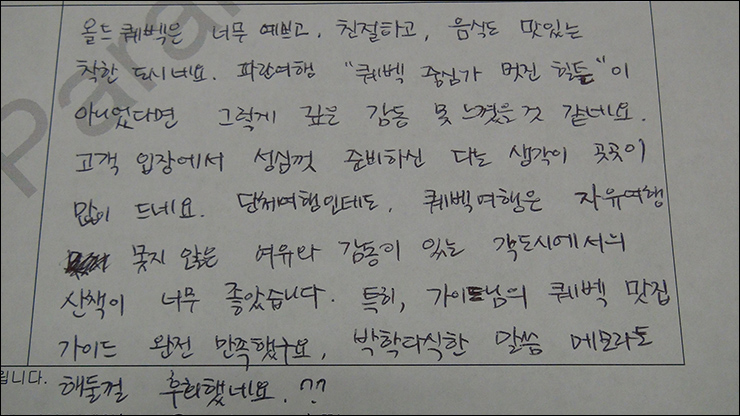 올드 퀘벡은 너무 예쁘고, 친절하고, 음식도 맛있는
착한 도시네요. 파란여행 "퀘벡 중심가 멋진 힐튼"이
아니었다면 그렇게 깊은 감동 못 느꼈을것 같네요.
고객 입장에서 성심껏 준비하신 다는 생각이 곳곳이
많이 드네요. 단체여행인데도, 퀘벡여행은 자유여행
못지 않은 여유와 감동이 있는 각도시에서의
산책이 너무 좋았습니다. 특히, 가이드님의 퀘벡 맛집
가이드 완전 만족했구요, 박학다식한 말씀 메모라도
해둘걸 후회했네요. ??
립니다.
Para